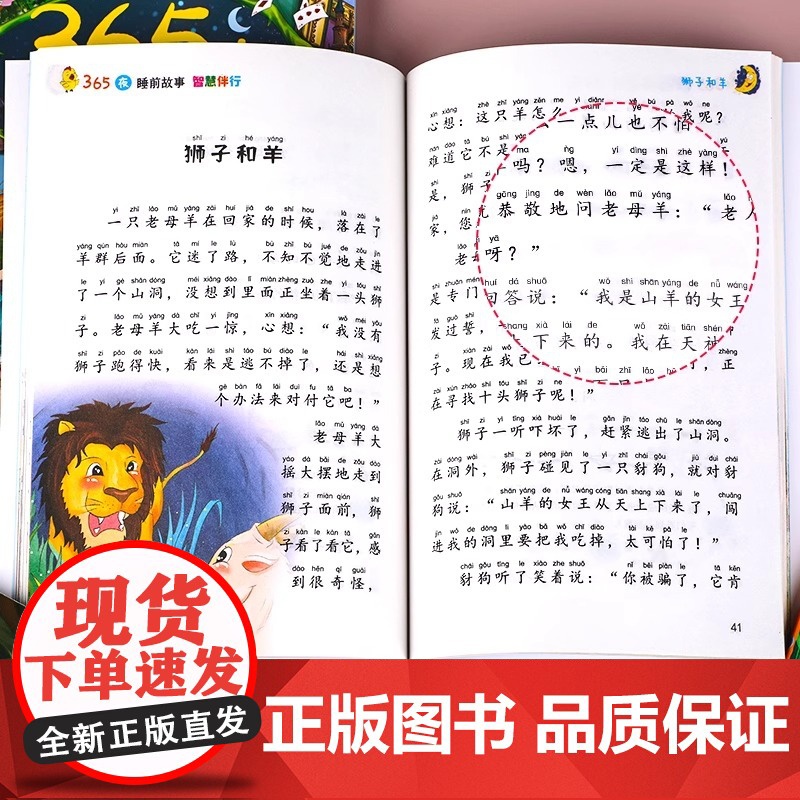 365
365夜 睡前故事 智慧伴行
shī zi hé yáng
狮子和羊
yì zhī lǎo mǔ yáng zài huí jiā de shí hou luò zài le
一只老母羊在回家的时候，落在了
yáng qún hòu miàn tā mí le lù bù zhī bù jué de zǒu jìn
羊群后面。它迷了路，不知不觉地走进
le yí gè shān dòng méi xiǎng dào lǐ miàn zhèng zuò zhe yì tóu shī
了一个山洞，没想到里面正坐着一头狮
zi lǎo mǔ yáng dà chī yì jīng xīn xiǎng wǒ méi yǒu
子。老母羊大吃一惊，心想：“我没有
shī zi pǎo de kuài kàn lái shì táo bú diào le hái shì xiǎng
狮子跑得快，看来是逃不掉了，还是想
gè bàn fǎ lái duì fu tā ba
个办法来对付它吧！”
lǎo mǔ yáng dà
老母羊大
yáo dà bǎi de zǒu dào
摇大摆地走到
shī zi miàn qián shī
狮子面前，狮
zi kàn le kàn tā gǎn
子看了看它，感
dào hěn qí guài
到很奇怪，
狮子和羊
心想：这只羊怎么一点儿也不怕我呢？
难道它不是羊吗？嗯，一定是这样！
gōng jìng de wèn lǎo mǔ yáng lǎo
是，狮子恭敬地问老母羊：“老人
家，您
yā
呀？”
huí dá shuō wǒ shì shān yáng de nǚ wáng
是专门回答说：“我是山羊的女王
shang xià lái de wǒ zài tiān shén
发过誓，下来的。我在天神
子。现在我已
zài xún zhǎo shí tóu shī zi ne
在寻找十头狮子呢！”
shī zi yì tīng xià huài le gǎn jǐn táo chū le shān dòng
狮子一听吓坏了，赶紧逃出了山洞。
zài dòng wài shī zi pèng jiàn le yì zhī chái gǒu jiù duì chái
在洞外，狮子碰见了一只豺狗，就对豺
gǒu shuō shān yáng de nǚ wáng cóng tiān shang xià lái le chuǎng
狗说：“山羊的女王从天上下来了，闯
jìn wǒ de dòng lǐ yào bǎ wǒ chī diào tài kě pà le
进我的洞里要把我吃掉，太可怕了！”
chái gǒu tīng le xiào zhe shuō nǐ bèi piàn le tā kěn
豺狗听了笑着说：“你被骗了，它肯
41
现货
下单速发
全新正版直发
正版图书 品质保证